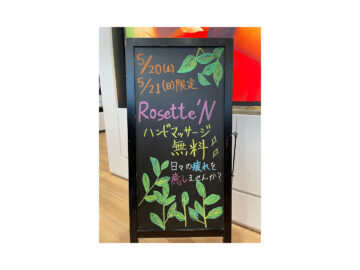 5/20(土)
5/21(日)限定
Rosette'N
ハンドマッサージ
無料
日々の疲れを
癒しませんか?